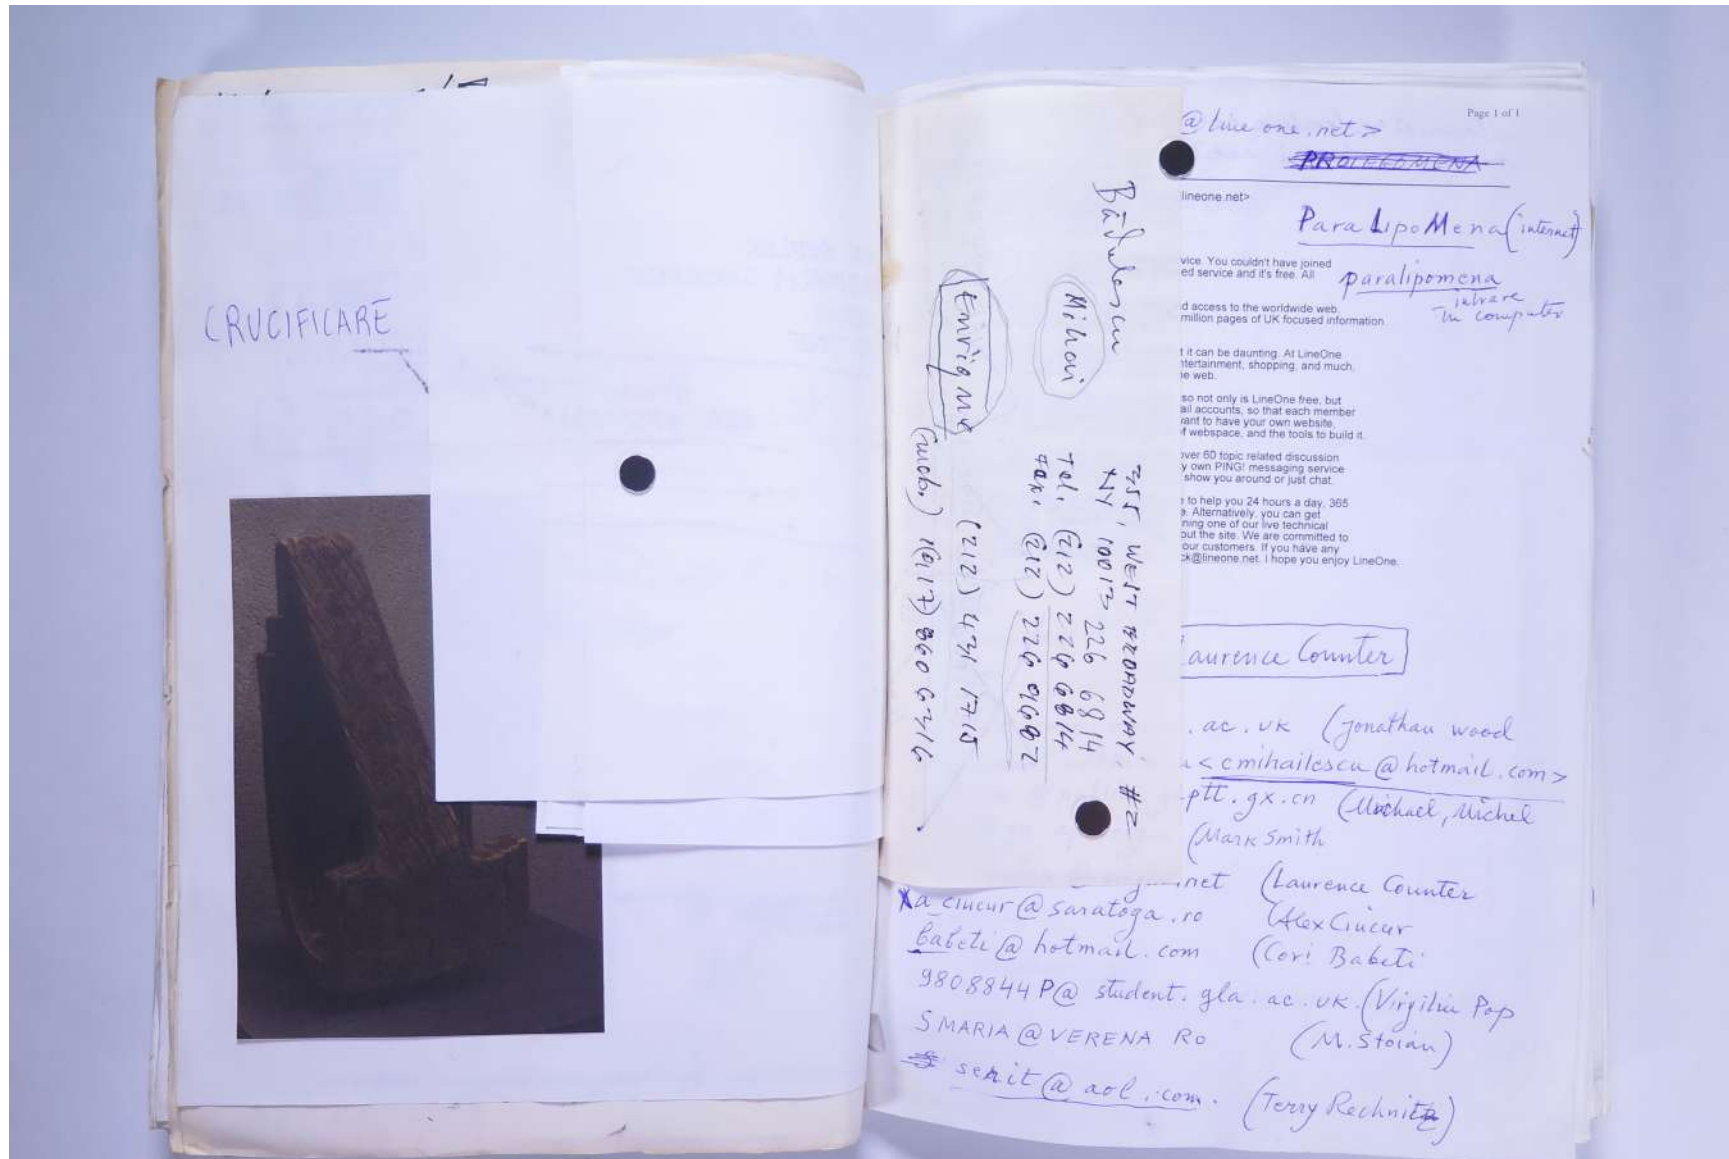 CRUCIFICARE
Bădulescu
Mihai
Enrique
355, WEST BROADWAY, #2
NY 10013 226 6814
Tel. (212) 226 6814
Fax. (212) 226 9682
(212) 431 1715
(mob.)
Page 1 of 1
@line one.net>
PROLEGOMENA
lineone.net>
ParaLipoMena (internet)
vice. You couldn't have joined
ed service and it's free. All
paralipomena
intrare
în computer
d access to the worldwide web.
million pages of UK focused information
t it can be daunting. At LineOne
ntertainment, shopping, and much,
e web.
so not only is LineOne free, but
ail accounts, so that each member
ant to have your own website,
f webspace, and the tools to build it.
over 60 topic related discussion
y own PING! messaging service
show you around or just chat.
to help you 24 hours a day, 365
e. Alternatively, you can get
ning one of our live technical
out the site. We are committed to
our customers. If you have any
ck@lineone.net. I hope you enjoy LineOne.
aurence Counter
.ac.uk (Jonathan Wood
<cmihailescu@hotmail.com>
ptt.gx.cn (Michael, Michel
(Mark Smith
net (Laurence Counter
a ciucur@saratoga.ro (Alex Ciucur
babeti@hotmail.com (Cori Babeti
9808844P@student.gla.ac.uk.(Virgiliu Pop
SMARIA@VERENA RO (M.Stoian)
senit@aol.com. (Terry Rechnitz)